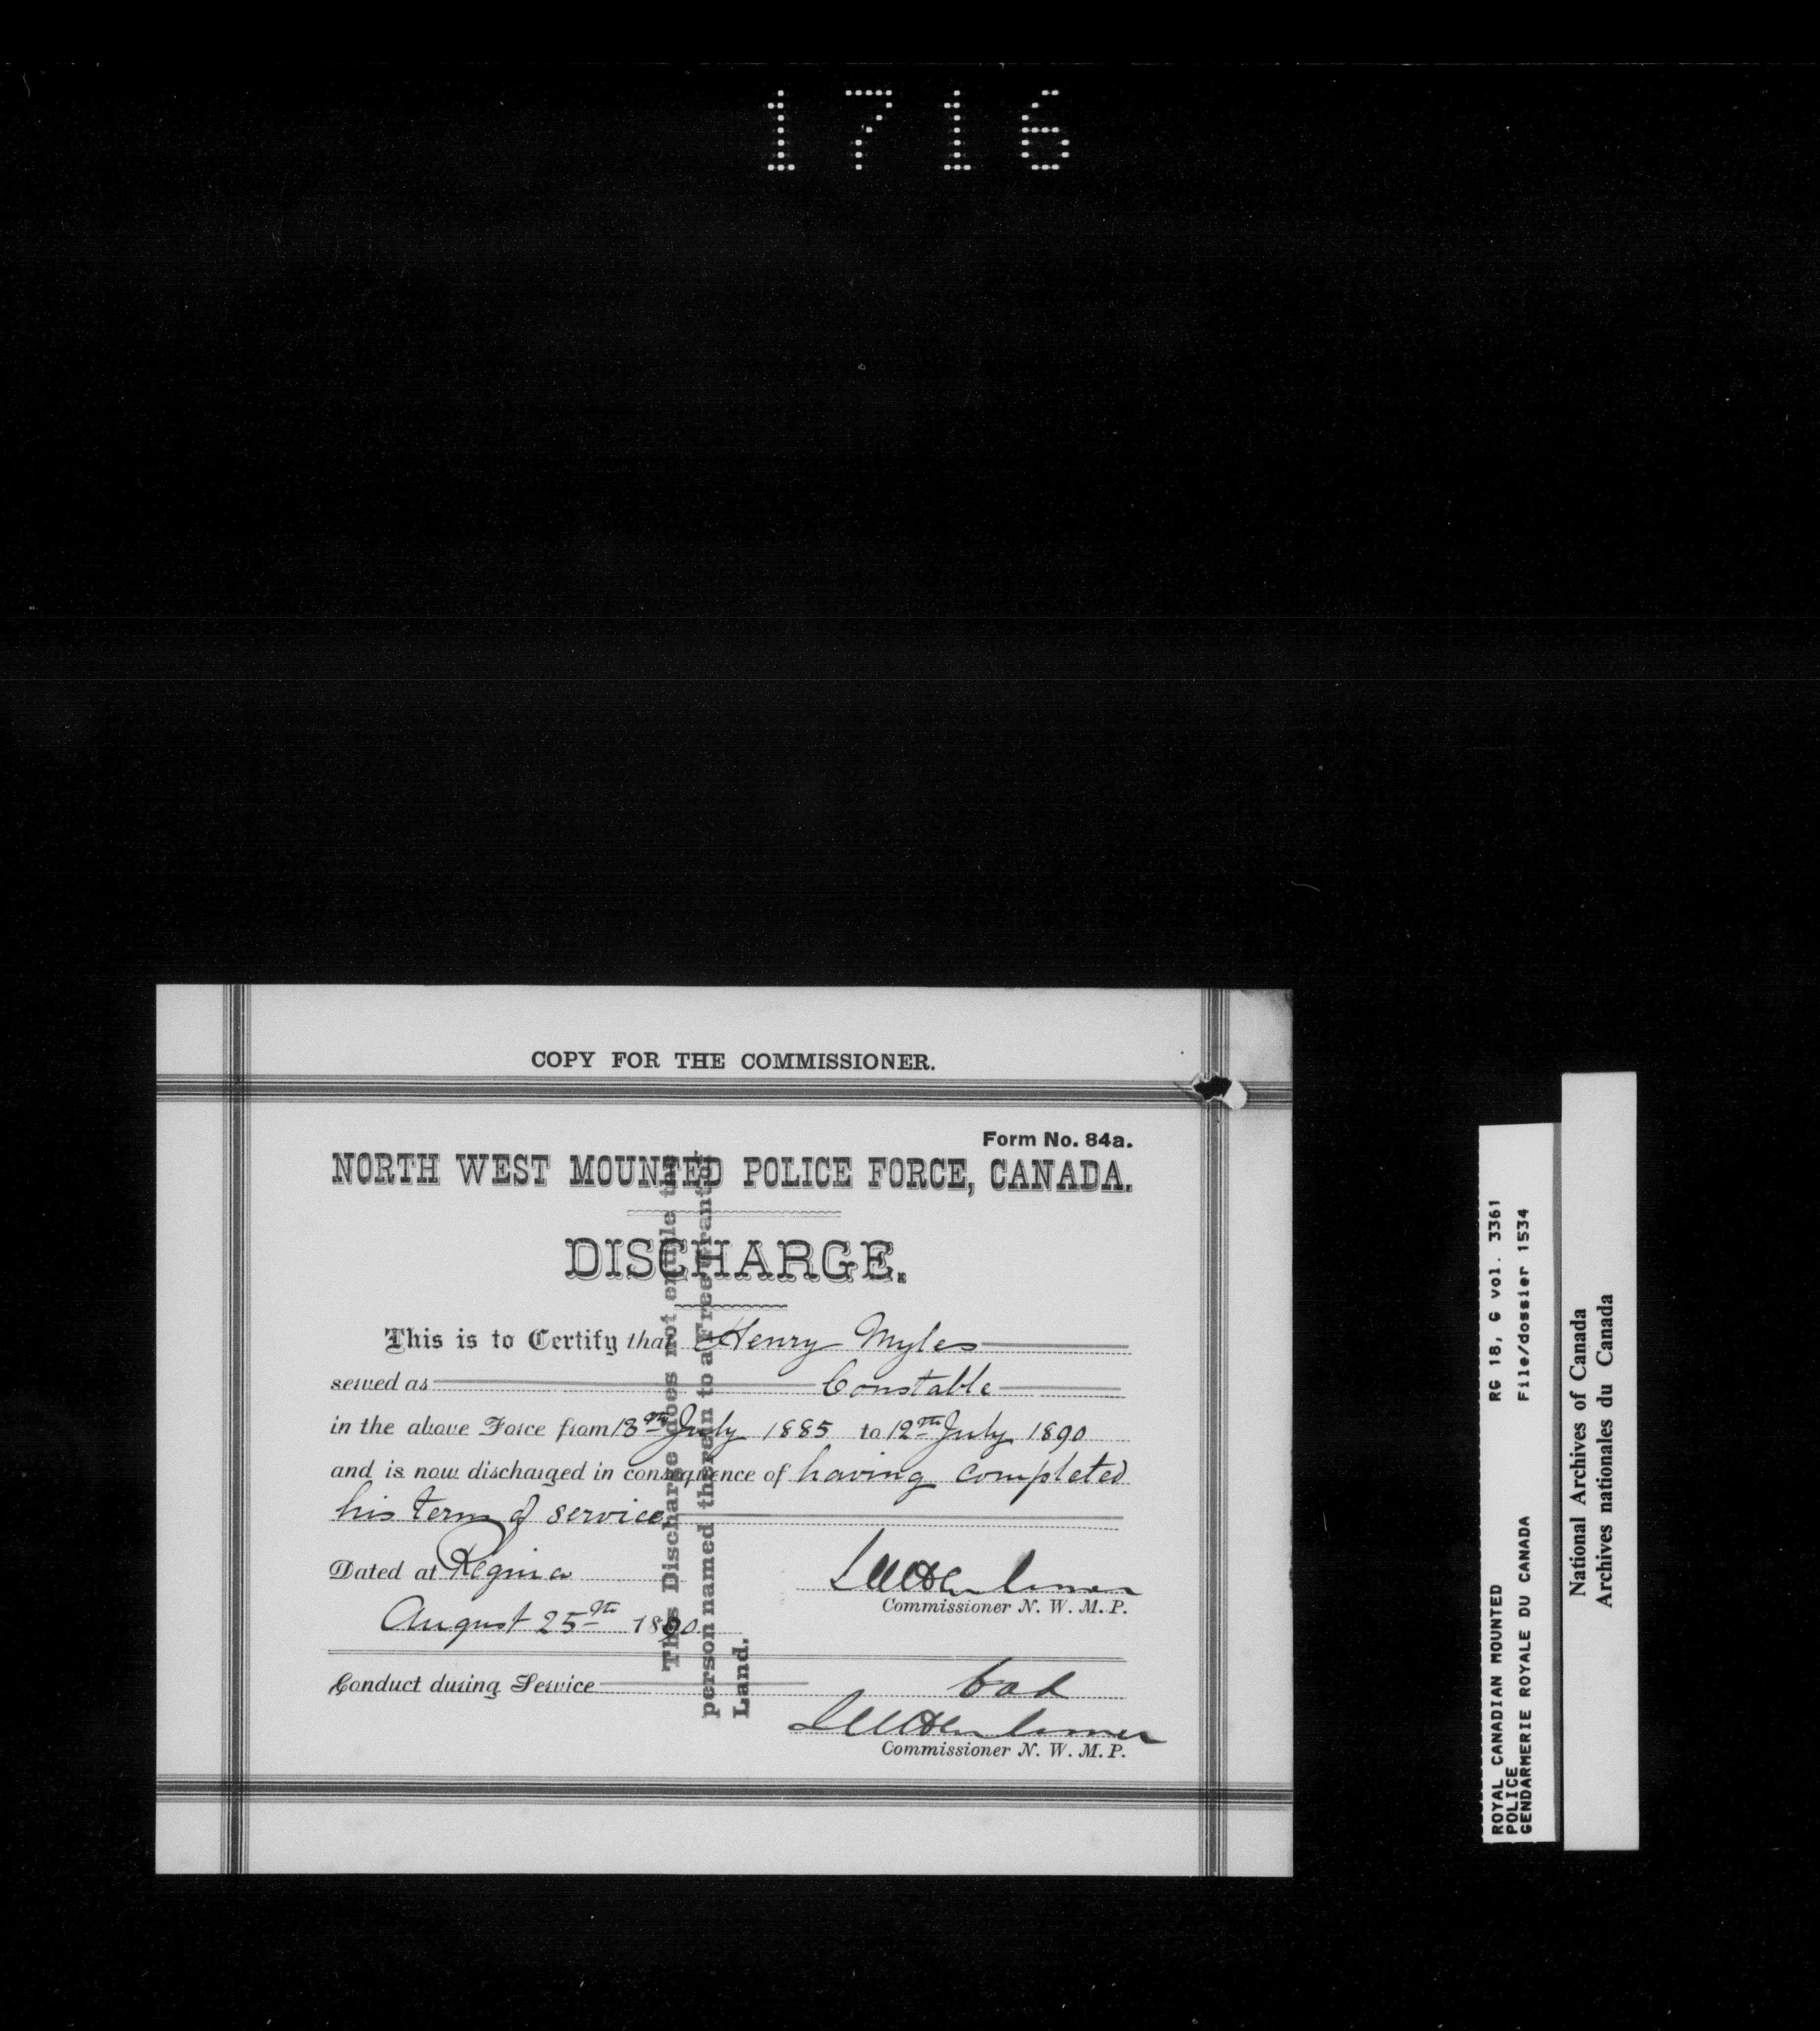 1716
COPY FOR THE COMMISSIONER.
Form No. 84a.
NORTH WEST MOUNTED POLICE FORCE, CANADA.
DISCHARGE.
This is to Certify that Henry Myles
served as Constable
in the above Force from 13th July 1885 to 12th July 1890
and is now discharged in consequence of having completed
his term of service
Dated at Regina
Commissioner N. W. M. P.
August 25th 1890
Conduct during Service bad
Commissioner N. W. M. P.
This Discharge does not entitle the
person named therein to a Free Grant of
Land.
ROYAL CANADIAN MOUNTED RG 18, G vol. 3361
POLICE
GENDARMERIE ROYALE DU CANADA File/dossier 1534
National Archives of Canada
Archives nationales du Canada